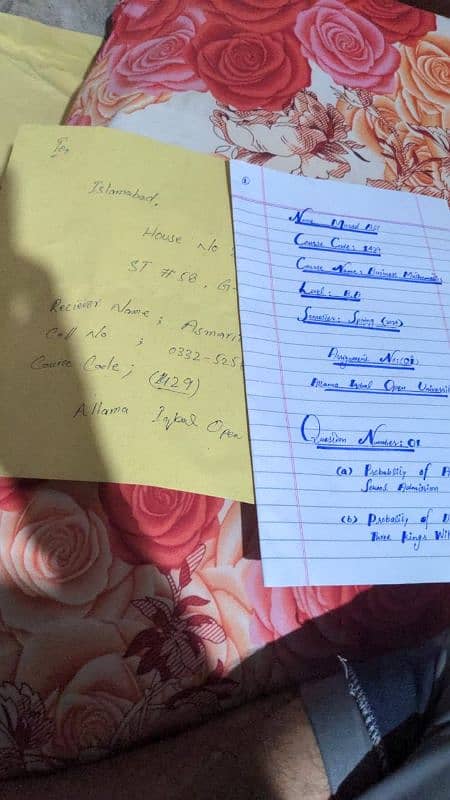 To,
Islamabad.
House No
ST # 58, G-
Reciever Name ; Asmari
Cell No ; 0332-525
Course Code ; (1429)
Allama Iqbal Open
①
Name:
Course Code: 1429
Course Name: Business Mathematics
Level: B.A
Semester: Spring
Assignment No:(01)
Allama Iqbal Open Universit
Question Number: 01
(a) Probability of
(b) Probabiliy of D
Three Kings Wit